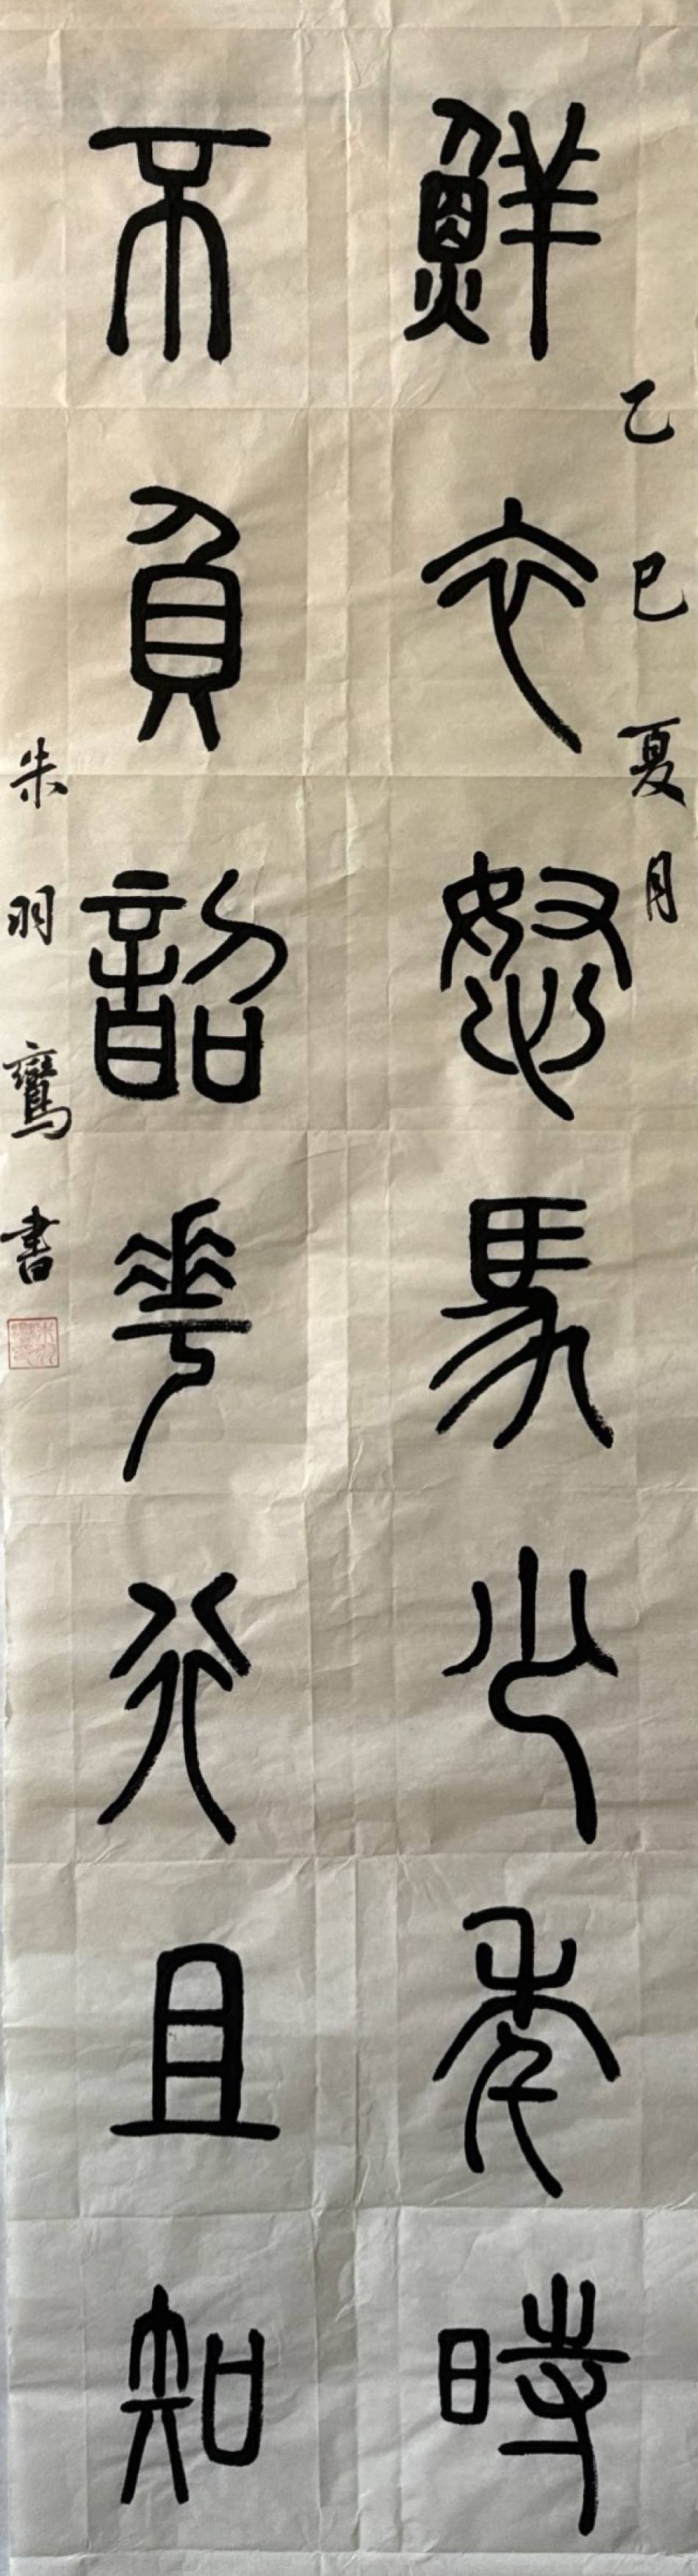 乙巳夏月
鮮衣怒馬少年時
不負韶華行且知
朱羽鸞書